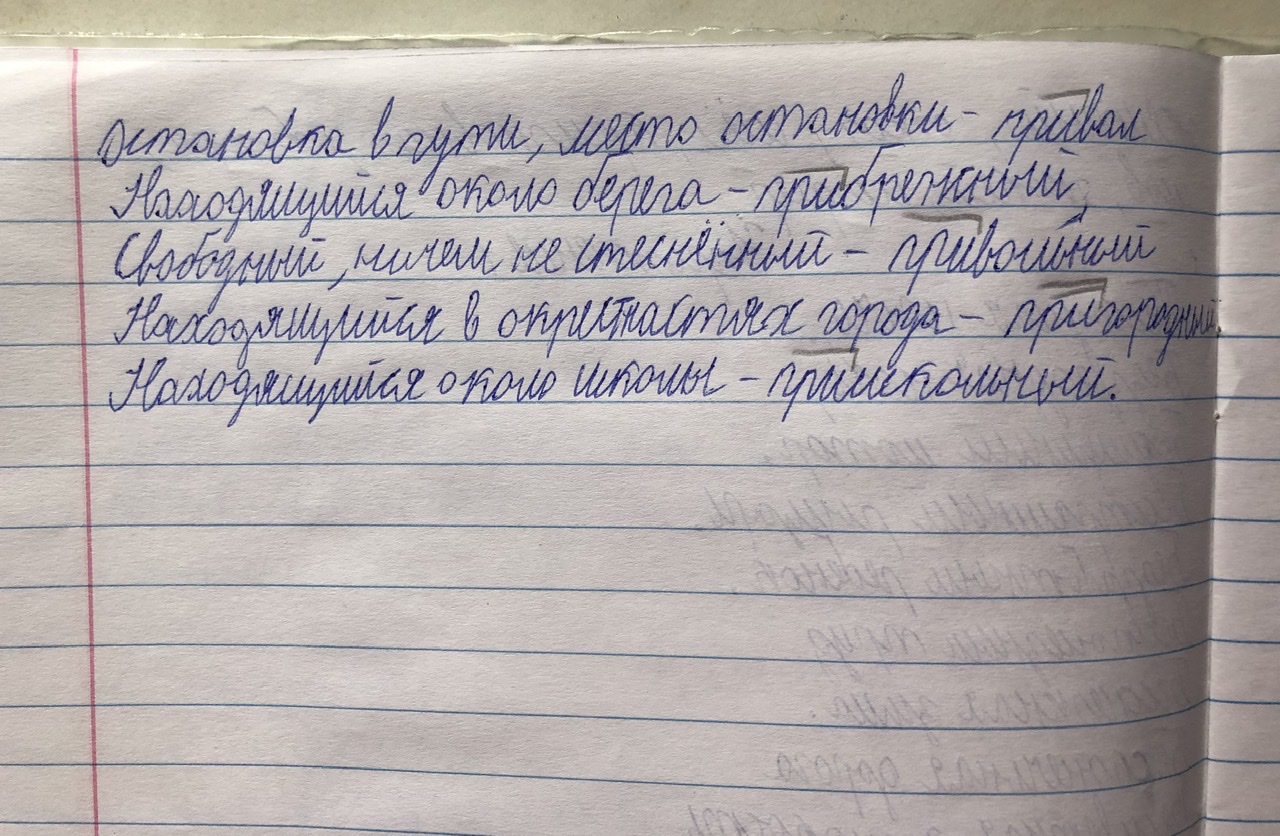 Остановка в пути, место остановки - привал
Находящийся около берега - прибрежный,
Свободный, ничем не стеснённый - привольный
Находящийся в окрестностях города - пригородный.
Находящийся около школы - пришкольный.